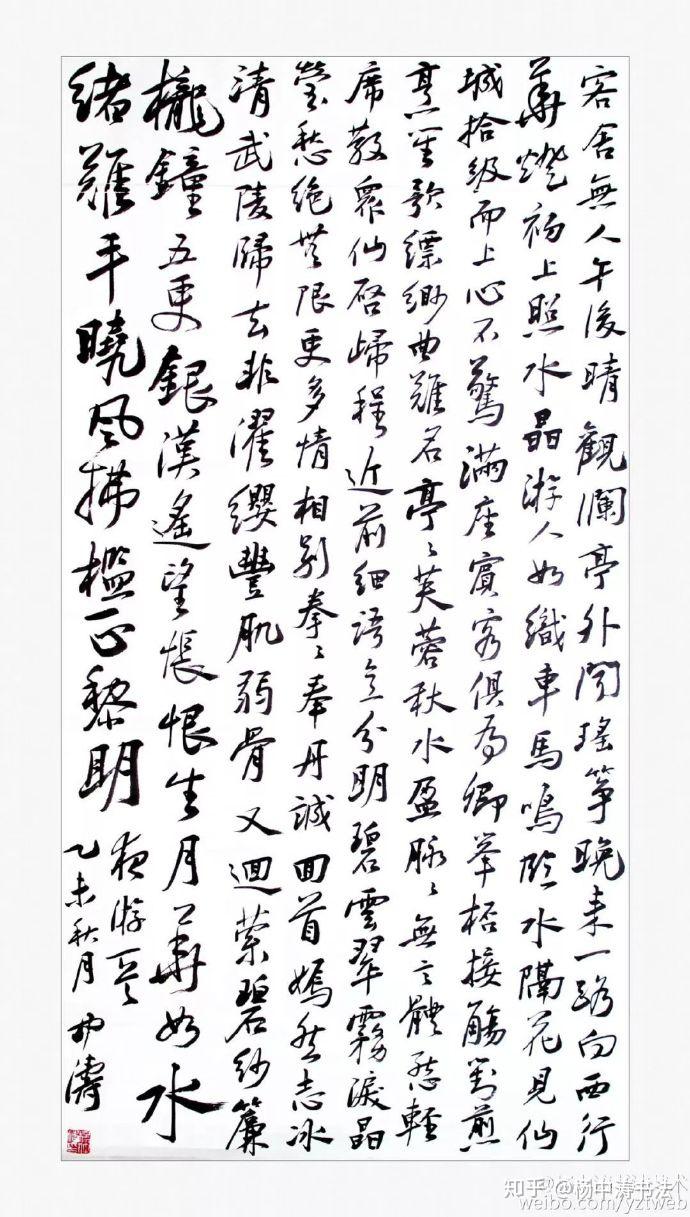 客舍無人午後晴觀瀾亭外聞瑤箏晚來一路向西行
華燈初上照水晶游人如織車馬鳴臨水隔花見仙
城拾級而上心不驚滿座賓客俱為卿舉杯接觴對煎
烹笙歌縹緲曲難名亭〻芙蓉秋水盈脉〻無言體態輕
席散眾仙啓歸程近前細語意分明碧雲翠霧淚晶
瑩愁絕無限更多情相別拳〻奉丹誠回首嫣然志冰
清武陵歸去非濯纓豐肌弱骨又迴縈碧紗簾
櫳鐘五更銀漢遙望悵恨生月華如水
緒難平曉風拂檻正黎明
夜游
乙未秋月中濤
知乎 @杨中涛书法
weibo.com/yztweb